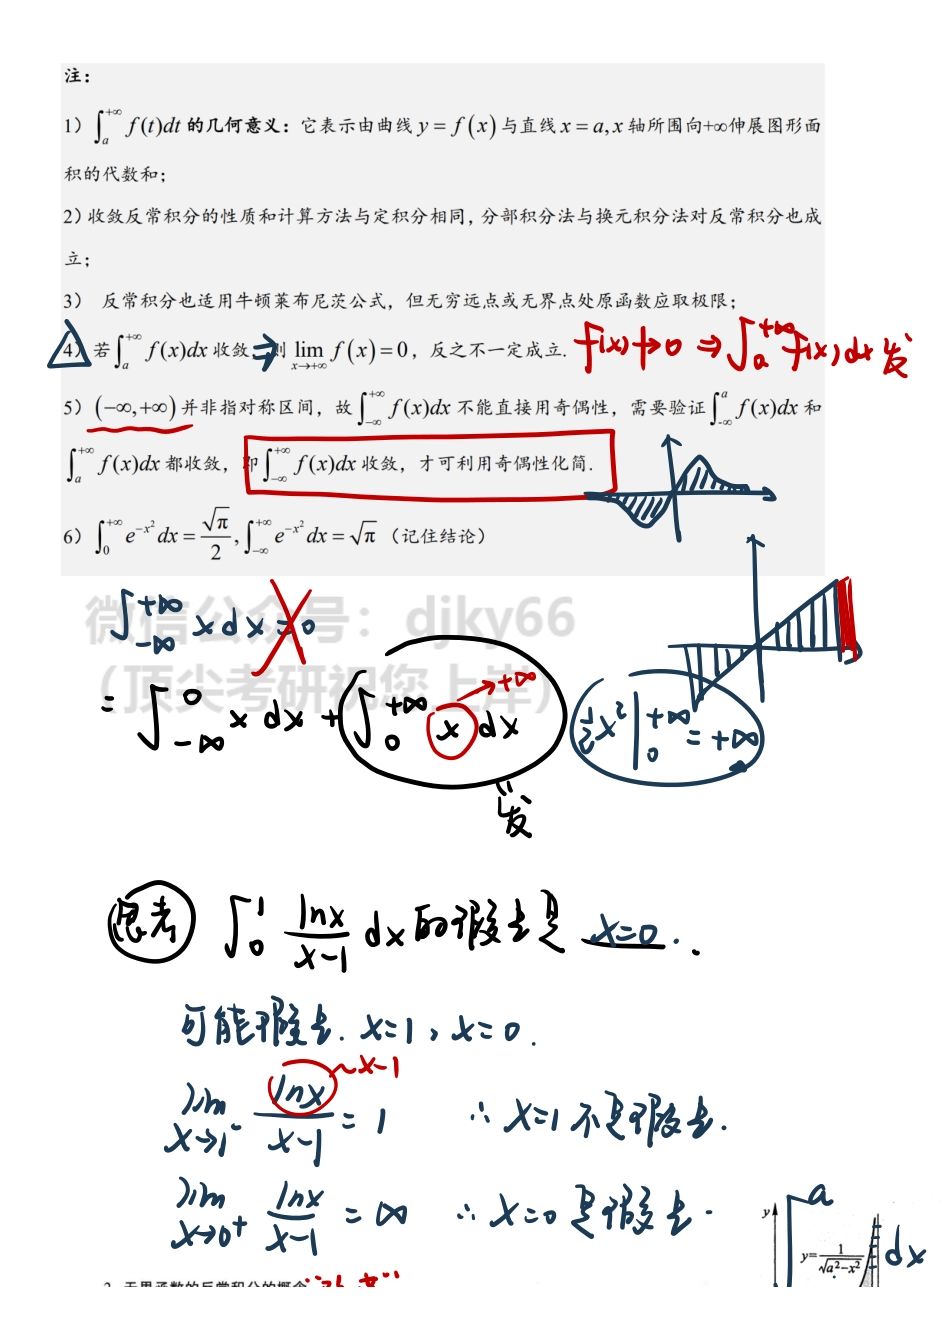 注:
1) $\int_a^{+\infty} f(t)dt$ 的几何意义: 它表示由曲线 $y=f(x)$ 与直线 $x=a,x$ 轴所围向+∞伸展图形面
积的代数和;
2) 收敛反常积分的性质和计算方法与定积分相同, 分部积分法与换元积分法对反常积分也成
立;
3) 反常积分也适用牛顿莱布尼茨公式, 但无穷远点或无界点处原函数应取极限;
4) 若 $\int_a^{+\infty} f(x)dx$ 收敛 ⇒ 则 $\lim_{x\to+\infty} f(x)=0$, 反之不一定成立. $f(x)\not\to 0 \Rightarrow \int_a^{+\infty} f(x)dx$ 发
5) $(-\infty,+\infty)$ 并非指对称区间, 故 $\int_{-\infty}^{+\infty} f(x)dx$ 不能直接用奇偶性, 需要验证 $\int_{-\infty}^{a} f(x)dx$ 和
$\int_a^{+\infty} f(x)dx$ 都收敛, 即 $\int_{-\infty}^{+\infty} f(x)dx$ 收敛, 才可利用奇偶性化简.
6) $\int_0^{+\infty} e^{-x^2}dx=\frac{\sqrt{\pi}}{2}, \int_{-\infty}^{+\infty} e^{-x^2}dx=\sqrt{\pi}$ (记住结论)
微信公众号: djky66
(顶尖考研祝您上岸)
$\int_{-\infty}^{+\infty} xdx=0$
$=\int_{-\infty}^{0} xdx+\int_0^{+\infty} xdx$ → +∞ $\frac{1}{2}x^2|_0^{+\infty}=+\infty$
发
思考 $\int_0^1 \frac{\ln x}{x-1}dx$ 的瑕点是 x=0.
可能瑕点. x=1, x=0.
~x-1
$\lim_{x\to1^-}\frac{\ln x}{x-1}=1$ ∴ x=1 不是瑕点.
$\lim_{x\to0^+}\frac{\ln x}{x-1}=\infty$ ∴ x=0 是瑕点.
a
y
$y=\frac{1}{\sqrt{a^2-x^2}}$ dx